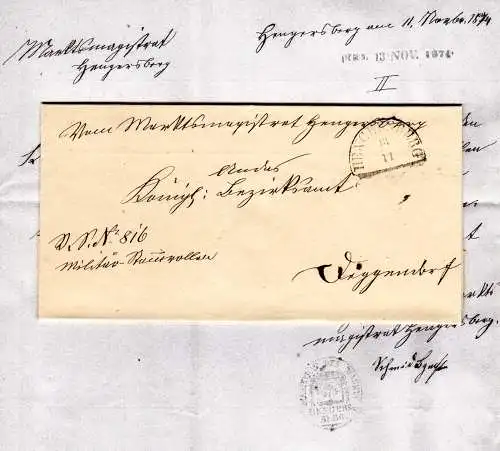 Marktsmagistrat
Hengersberg
Hengersberg am 11. Novbr. 1874
PRES. 13. NOV. 1874
II
Vom Marktsmagistrat Hengersberg
HENGERSBERG
11
An das
Königl: Bezirksamt
V. S. No. 816
Militär-Stammrollen
Deggendorf
magistrat Hengersberg.
Schmid